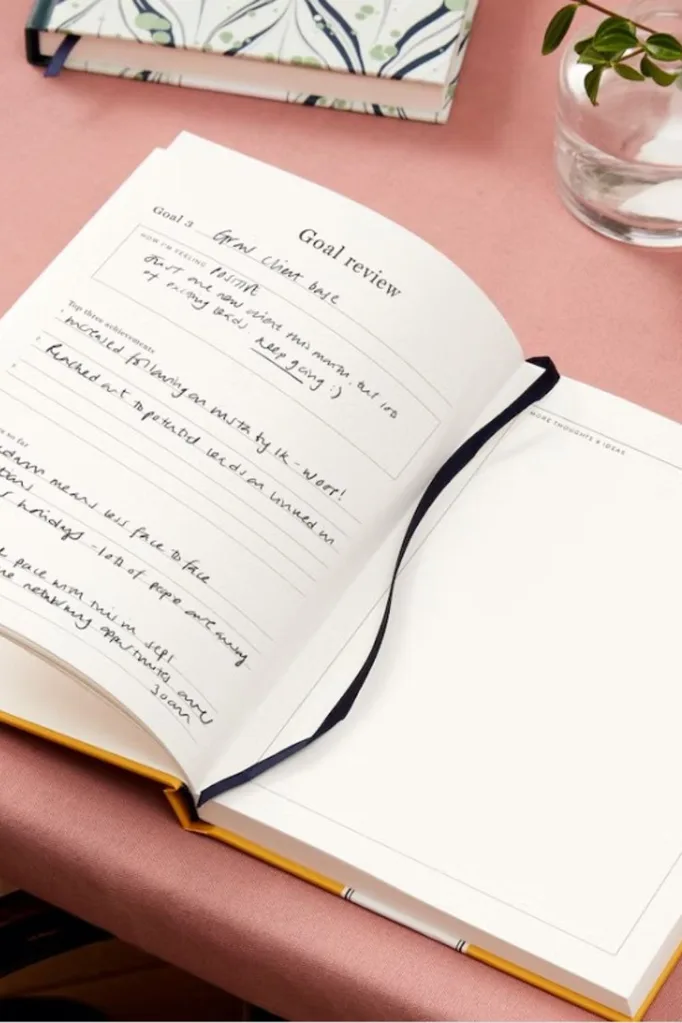 Goal review
Goal 3 Grow client base
HOW I'M FEELING POSITIVE
Just one new client this month, but lots
of exciting leads. Keep going :)
Top three achievements
Increased following on insta by 1k - woot!
Reached out to potential leads on linked in
so far
means less face to face
holidays - lots of people are away
pace with this in sept
networking opportunities over
MORE THOUGHTS & IDEAS